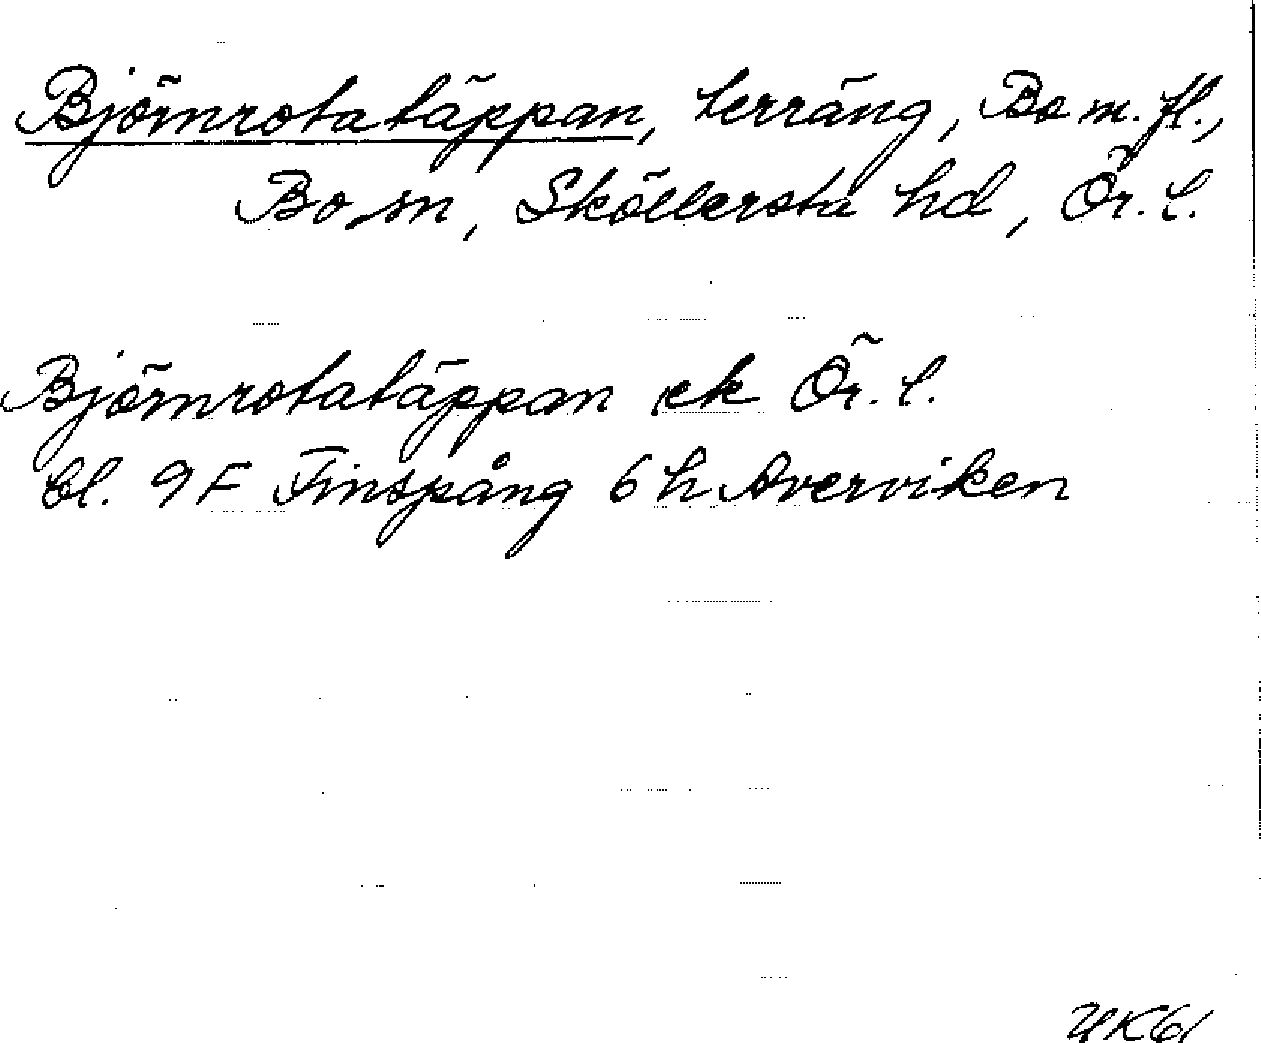 Björnrotatäppan, terräng, Bo m. fl.,
Bo sn, Sköllersta hd, Ör. l.
Björnrotatäppan ek Ör. l.
bl. 9F Finspång 6h Averviken